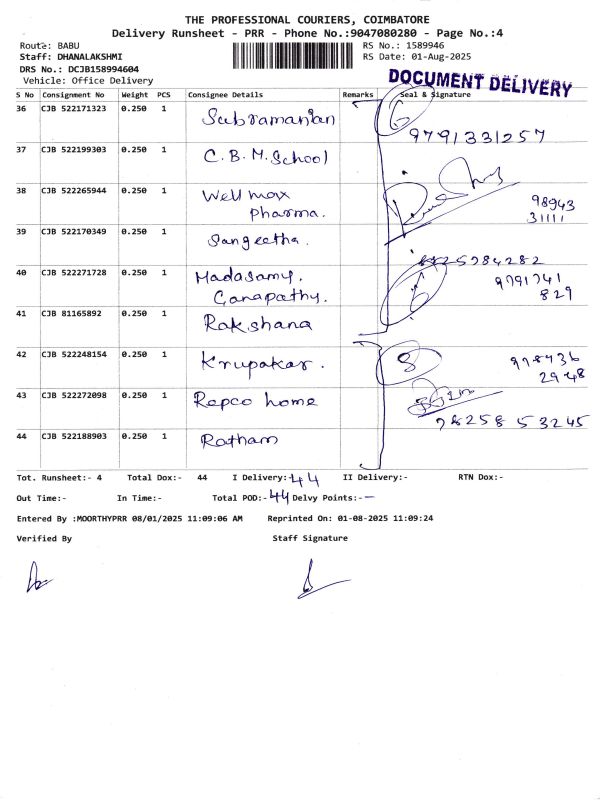 THE PROFESSIONAL COURIERS, COIMBATORE
Delivery Runsheet - PRR - Phone No.:9047080280 - Page No.:4
Route: BABU
RS No.: 1589946
Staff: DHANALAKSHMI
RS Date: 01-Aug-2025
DRS No.: DCJB158994604
Vehicle: Office Delivery
DOCUMENT DELIVERY
S No Consignment No Weight PCS Consignee Details Remarks Seal & Signature
36 CJB 522171323 0.250 1 Subramanian
9791331257
37 CJB 522199303 0.250 1 C.B.M.School
38 CJB 522265944 0.250 1 Well max
Pharma.
98943
31111
39 CJB 522170349 0.250 1 Sangeetha.
40 CJB 522271728 0.250 1 Madasamy.
Ganapathy.
9791741
829
41 CJB 81165892 0.250 1 Rakshana
42 CJB 522248154 0.250 1 Krupakar.
8
43 CJB 522272098 0.250 1 Repco home
98258 53245
44 CJB 522188903 0.250 1 Ratham
Tot. Runsheet:- 4 Total Dox:- 44 I Delivery:- 44 II Delivery:- RTN Dox:-
Out Time:- In Time:- Total POD:- 44 Delvy Points:- —
Entered By :MOORTHYPRR 08/01/2025 11:09:06 AM Reprinted On: 01-08-2025 11:09:24
Verified By Staff Signature